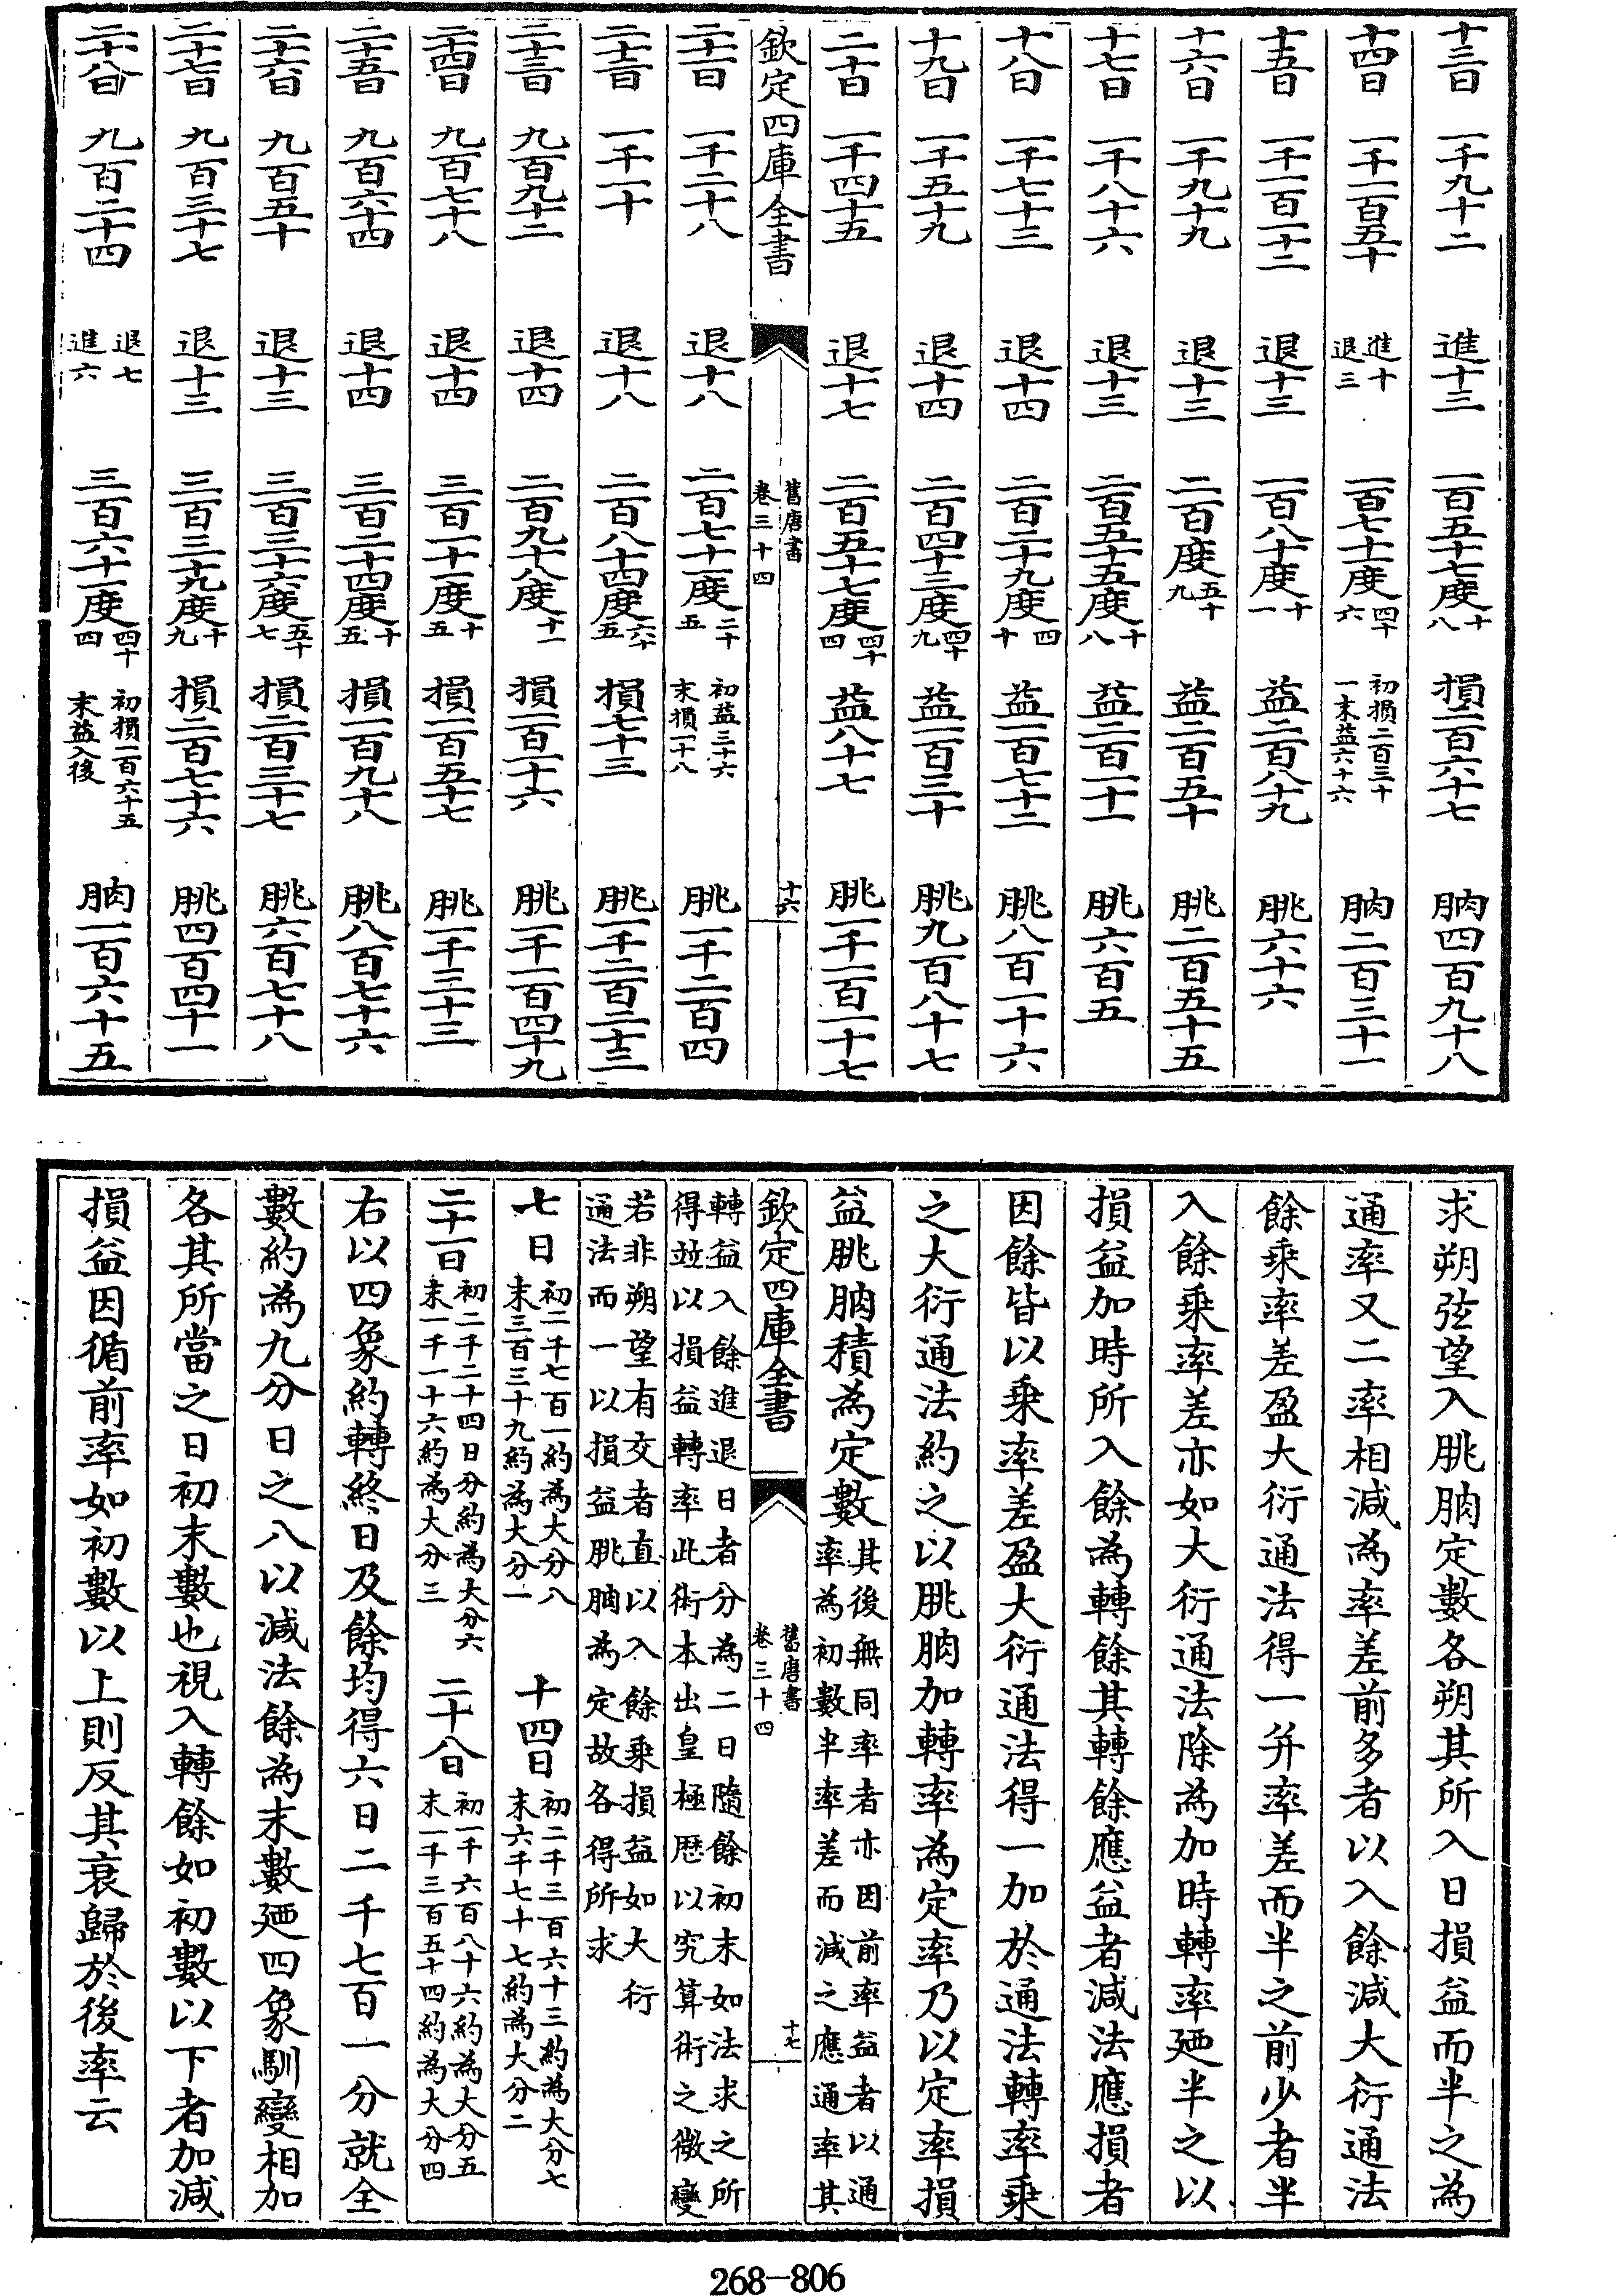 十三日 一千九十二 進十三 一百五十七度十八 損二百六十七 朒四百九十八
十四日 一千一百五十 進十退三 一百七十一度四十六 初損二百三十一末益六十六 朒二百三十一
十五日 一千一百一十二 退十三 一百八十度十一 益二百八十九 朓六十六
十六日 一千九十九 退十三 二百度五十九 益二百五十 朓二百五十五
十七日 一千八十六 退十三 二百五十五度十八 益二百一十一 朓六百五
十八日 一千七十三 退十四 二百二十九度四十 益一百七十二 朓八百一十六
十九日 一千五十九 退十四 二百四十三度四十九 益一百三十 朓九百八十七
二十日 一千四十五 退十七 二百五十七度四十四 益八十七 朓一千一百一十七
欽定四庫全書 舊唐書卷三十四 十六
二十一日 一千二十八 退十八 二百七十一度二十五 初益三十六末損一十八 朓一千二百四
二十二日 一千一十 退十八 二百八十四度六十五 損七十三 朓一千二百二十三
二十三日 九百九十二 退十四 二百九十八度十一 損一百一十六 朓一千一百四十九
二十四日 九百七十八 退十四 三百一十一度十五 損一百五十七 朓一千三十三
二十五日 九百六十四 退十四 三百二十四度十五 損一百九十八 朓八百七十六
二十六日 九百五十 退十三 三百三十六度五十七 損二百三十七 朓六百七十八
二十七日 九百三十七 退十三 三百三十九度十九 損二百七十六 朓四百四十一
二十八日 九百二十四 退七進六 三百六十一度四十四 初損一百六十五末益入後 朒一百六十五
求朔弦望入朓朒定數各朔其所入日損益而半之為
通率又二率相減為率差前多者以入餘減大衍通法
餘乘率差盈大衍通法得一并率差而半之前少者半
入餘乘率差亦如大衍通法除為加時轉率廼半之以
損益加時所入餘為轉餘其轉餘應益者減法應損者
因餘皆以乘率差盈大衍通法得一加於通法轉率乘
之大衍通法約之以朓朒加轉率為定率乃以定率損
益朓朒積為定數其後無同率者亦因前率益者以通
率為初數半率差而減之應通率其
欽定四庫全書 舊唐書卷三十四 十七
轉益入餘進退日者分為二日隨餘初末如法求之所
得並以損益轉率此術本出皇極歷以究算術之微變
若非朔望有交者直以入餘乘損益如大衍
通法而一以損益朓朒為定故各得所求
七日 初二千七百一約為大分八末三百三十九約為大分一 十四日 初二千三百六十三約為大分七末六千七十七約為大分二
二十一日 初二千二十四日分約為大分六末一千一十六約為大分三 二十八日 初一千六百八十六約為大分五末一千三百五十四約為大分四
右以四象約轉終日及餘均得六日二千七百一分就全
數約為九分日之八以減法餘為末數廼四象馴變相加
各其所當之日初末數也視入轉餘如初數以下者加減
損益因循前率如初數以上則反其衰歸於後率云
268-806